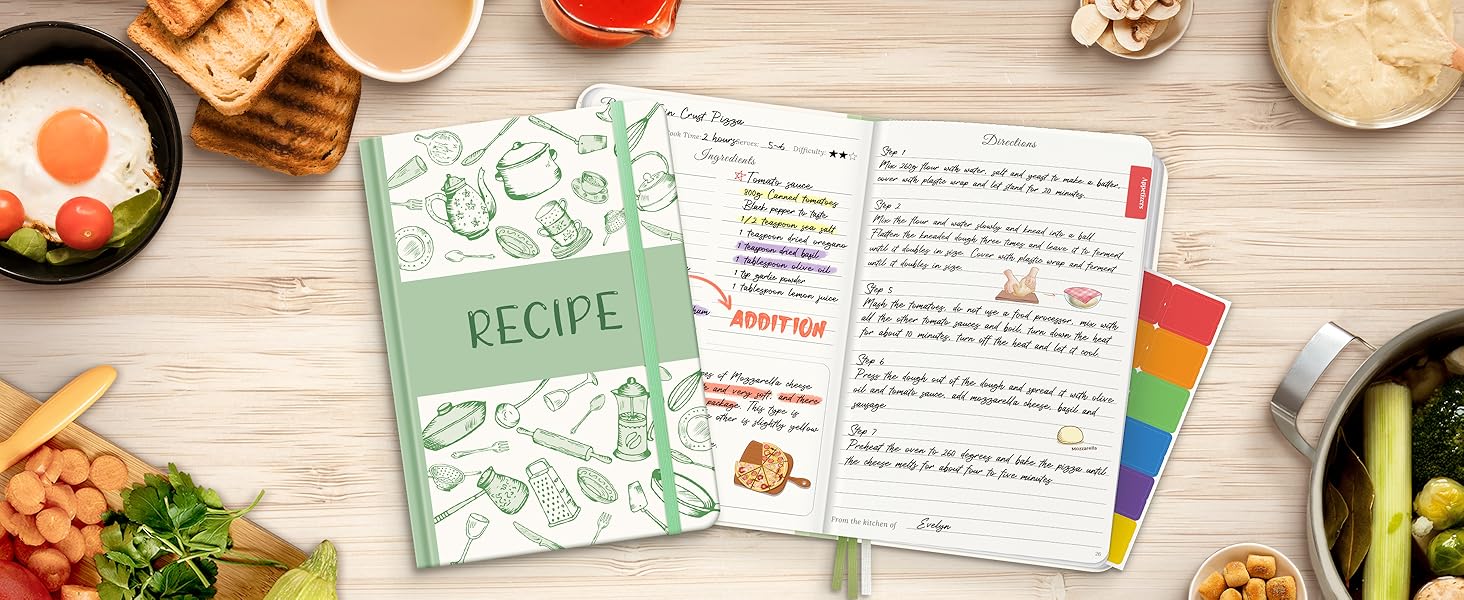 RECIPE
in Crust Pizza
Cook Time: 2 hours Serves: 5-6 Difficulty:
Ingredients
Tomato sauce
800g Canned tomatoes
Black pepper to taste
1/2 teaspoon sea salt
1 teaspoon dried oregano
1 teaspoon dried basil
1 tablespoon olive oil
1 tsp garlic powder
1 tablespoon lemon juice
ADDITION
of Mozzarella cheese
and very soft, and there
package. This type is
other is slightly yellow
Directions
Step 1
Mix 260g flour with water, salt and yeast to make a batter,
cover with plastic wrap and let stand for 20 minutes.
Step 2
Mix the flour and water slowly and knead into a ball.
Flatten the kneaded dough three times and leave it to ferment
until it doubles in size. Cover with plastic wrap and ferment
until it doubles in size.
Step 5
Mash the tomatoes, do not use a food processor, mix with
all the other tomato sauces and boil, turn down the heat
for about 10 minutes, turn off the heat and let it cool.
Step 6
Press the dough out of the dough and spread it with olive
oil and tomato sauce, add mozzarella cheese, basil and
sausage.
Mozzarella
Step 7
Preheat the oven to 260 degrees and bake the pizza until
the cheese melts for about four to five minutes.
From the kitchen of Evelyn
26
Appetizers